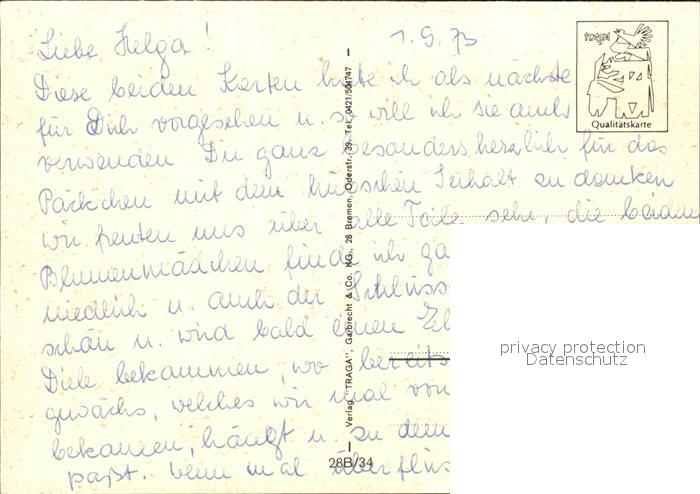 Liebe Helga!
1.9.73
Diese beiden Karten hatte ich als nächste
für Dich vorgesehen u. so will ich sie auch
verwenden Dir ganz besonders herzlich für das
Päckchen mit dem hübschen Inhalt zu danken
wir freuten uns über alle Teile sehr, die beiden
Blumenmädchen finde ich ga
niedlich u. auch der Schlüss
schön u. wird bald einen
Diele bekommen, wo bereits
gewächs, welches wir mal von
bekamen, hängt u. zu dem
paßt. Wenn mal überflüs
Verlag "TRAGA", Garbrecht & Co. KG., 28 Bremen, Oderstr. 39, Tel. 0421/504747
28B/34
traga
Qualitätskarte
privacy protection
Datenschutz